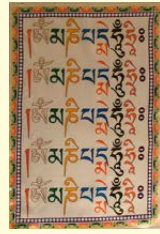 ཨོཾ་མ་ཎི་པདྨེ་ཧཱུྃ༔
ཨོཾ་མ་ཎི་པདྨེ་ཧཱུྃ༔
ཨོཾ་མ་ཎི་པདྨེ་ཧཱུྃ༔
ཨོཾ་མ་ཎི་པདྨེ་ཧཱུྃ༔
ཨོཾ་མ་ཎི་པདྨེ་ཧཱུྃ༔